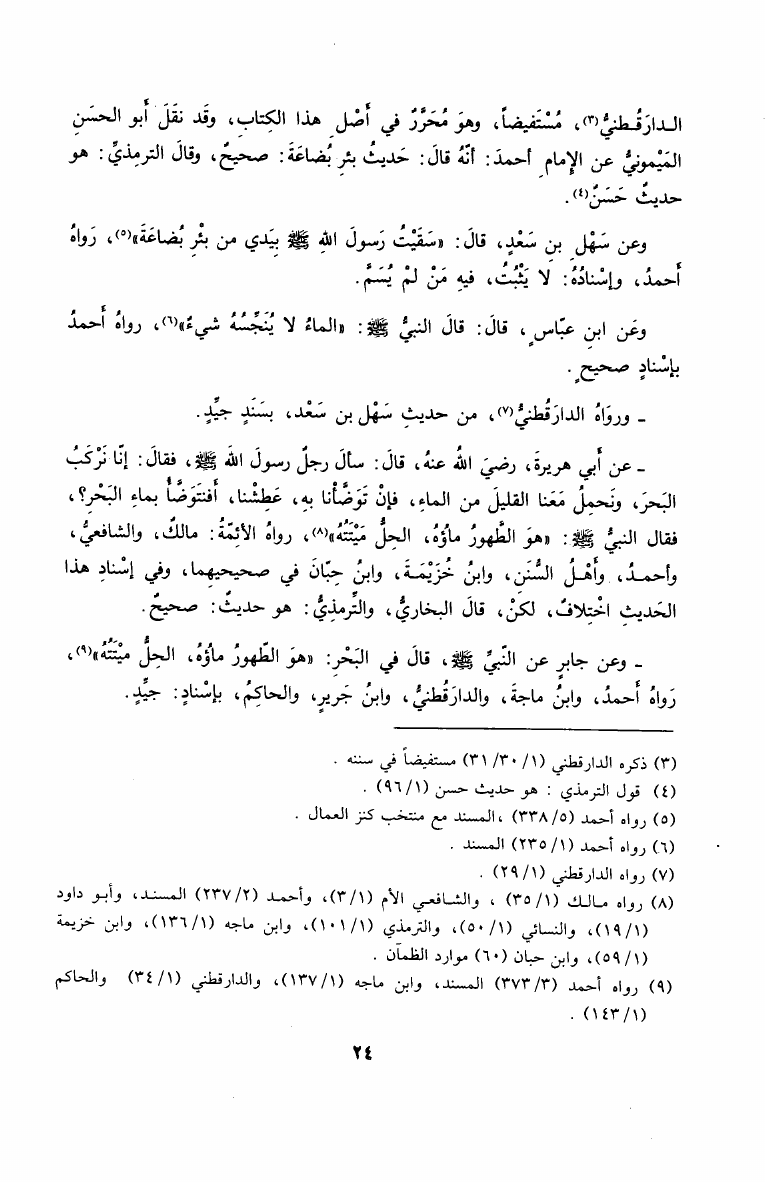 الـدارَقُـطنيُّ(٣)، مُسْتَفيضاً، وهوَ مُحَرَّرٌ في أَصْلِ هذا الكِتابِ، وقَد نقَلَ أَبو الحسَنِ
المَيْمونيُّ عن الإمامِ أحمدَ: أنّهُ قالَ: حَديثُ بئرِ بُضاعَةَ: صحيحٌ، وقالَ الترمِذيُّ: هو
حديثٌ حَسَنٌ(٤).
وعن سَهْلِ بنِ سَعْدٍ، قالَ: «سَقَيْتُ رَسولَ اللهِ ﷺ بيَدي من بئْرِ بُضاعَةَ»(٥)، رَواهُ
أَحمدُ، وإسْنادُهُ: لا يَثْبُتُ، فيهِ مَنْ لمْ يُسَمَّ.
وعَن ابنِ عبّاسٍ، قالَ: قالَ النبيُّ ﷺ: «الماءُ لا يُنَجِّسُهُ شيءٌ»(٦)، رواهُ أَحمدُ
بإسْنادٍ صحيحٍ.
ـ ورَواهُ الدارَقُطنيُّ(٧)، من حديثِ سَهْل بن سَعْد، بسَنَدٍ جيِّدٍ.
ـ عن أَبي هريرةَ، رضيَ اللهُ عنهُ، قالَ: سألَ رجلٌ رسولَ اللهِ ﷺ، فقالَ: إنّا نَرْكَبُ
البَحرَ، ونَحمِلُ مَعَنا القليلَ من الماءِ، فإنْ تَوَضَّأنا بهِ، عَطِشْنا، أَفنتَوَضَّأُ بماءِ البَحْرِ؟،
فقال النبيُّ ﷺ: «هوَ الطَّهورُ ماؤُهُ، الحِلُّ مَيْتَتُهُ»(٨)، رواهُ الأئِمّةُ: مالكٌ، والشافعيُّ،
وأحمـدُ، وأَهْـلُ السُّنَنِ، وابنُ خُزَيْمَـةَ، وابنُ حِبّانَ في صحيحيهِما، وفي إسْنادِ هذا
الحَديثِ اخْتِلافٌ، لكنْ، قالَ البخاريُّ، والتِّرمذِيُّ: هو حديثٌ: صحيحٌ.
ـ وعن جابرٍ عن النَّبيِّ ﷺ، قالَ في البَحْرِ: «هوَ الطّهورُ ماؤُهُ، الحِلُّ ميْتَتُهُ»(٩)،
رَواهُ أَحمدُ، وابنُ ماجةَ، والدارَقُطنيُّ، وابنُ جَريرٍ، والحاكِمُ، بإسْنادٍ: جيِّدٍ.
(٣) ذكره الدارقطني (١/٣٠/٣١) مستفيضاً في سننه .
(٤) قول الترمذي : هو حديث حسن (١/٩٦) .
(٥) رواه أحمد (٥/٣٣٨) ،المسند مع منتخب كنز العمال .
(٦) رواه أحمد (١/٢٣٥) المسند .
(٧) رواه الدارقطني (١/٢٩) .
(٨) رواه مـالـك (١/٣٥) ، والشـافعـي الأم (١/٣)، وأحمـد (٢/٢٣٧) المسنـد، وأبـو داود
(١/١٩)، والنسائي (١/٥٠)، والترمذي (١/١٠١)، وابن ماجه (١/١٣٦)، وابن خزيمة
(١/٥٩)، وابن حبان (٦٠) موارد الظمآن .
(٩) رواه أحمد (٣/٣٧٣) المسند، وابن ماجه (١/١٣٧)، والدارقطني (١/٣٤) والحاكم
(١/١٤٣) .
٢٤